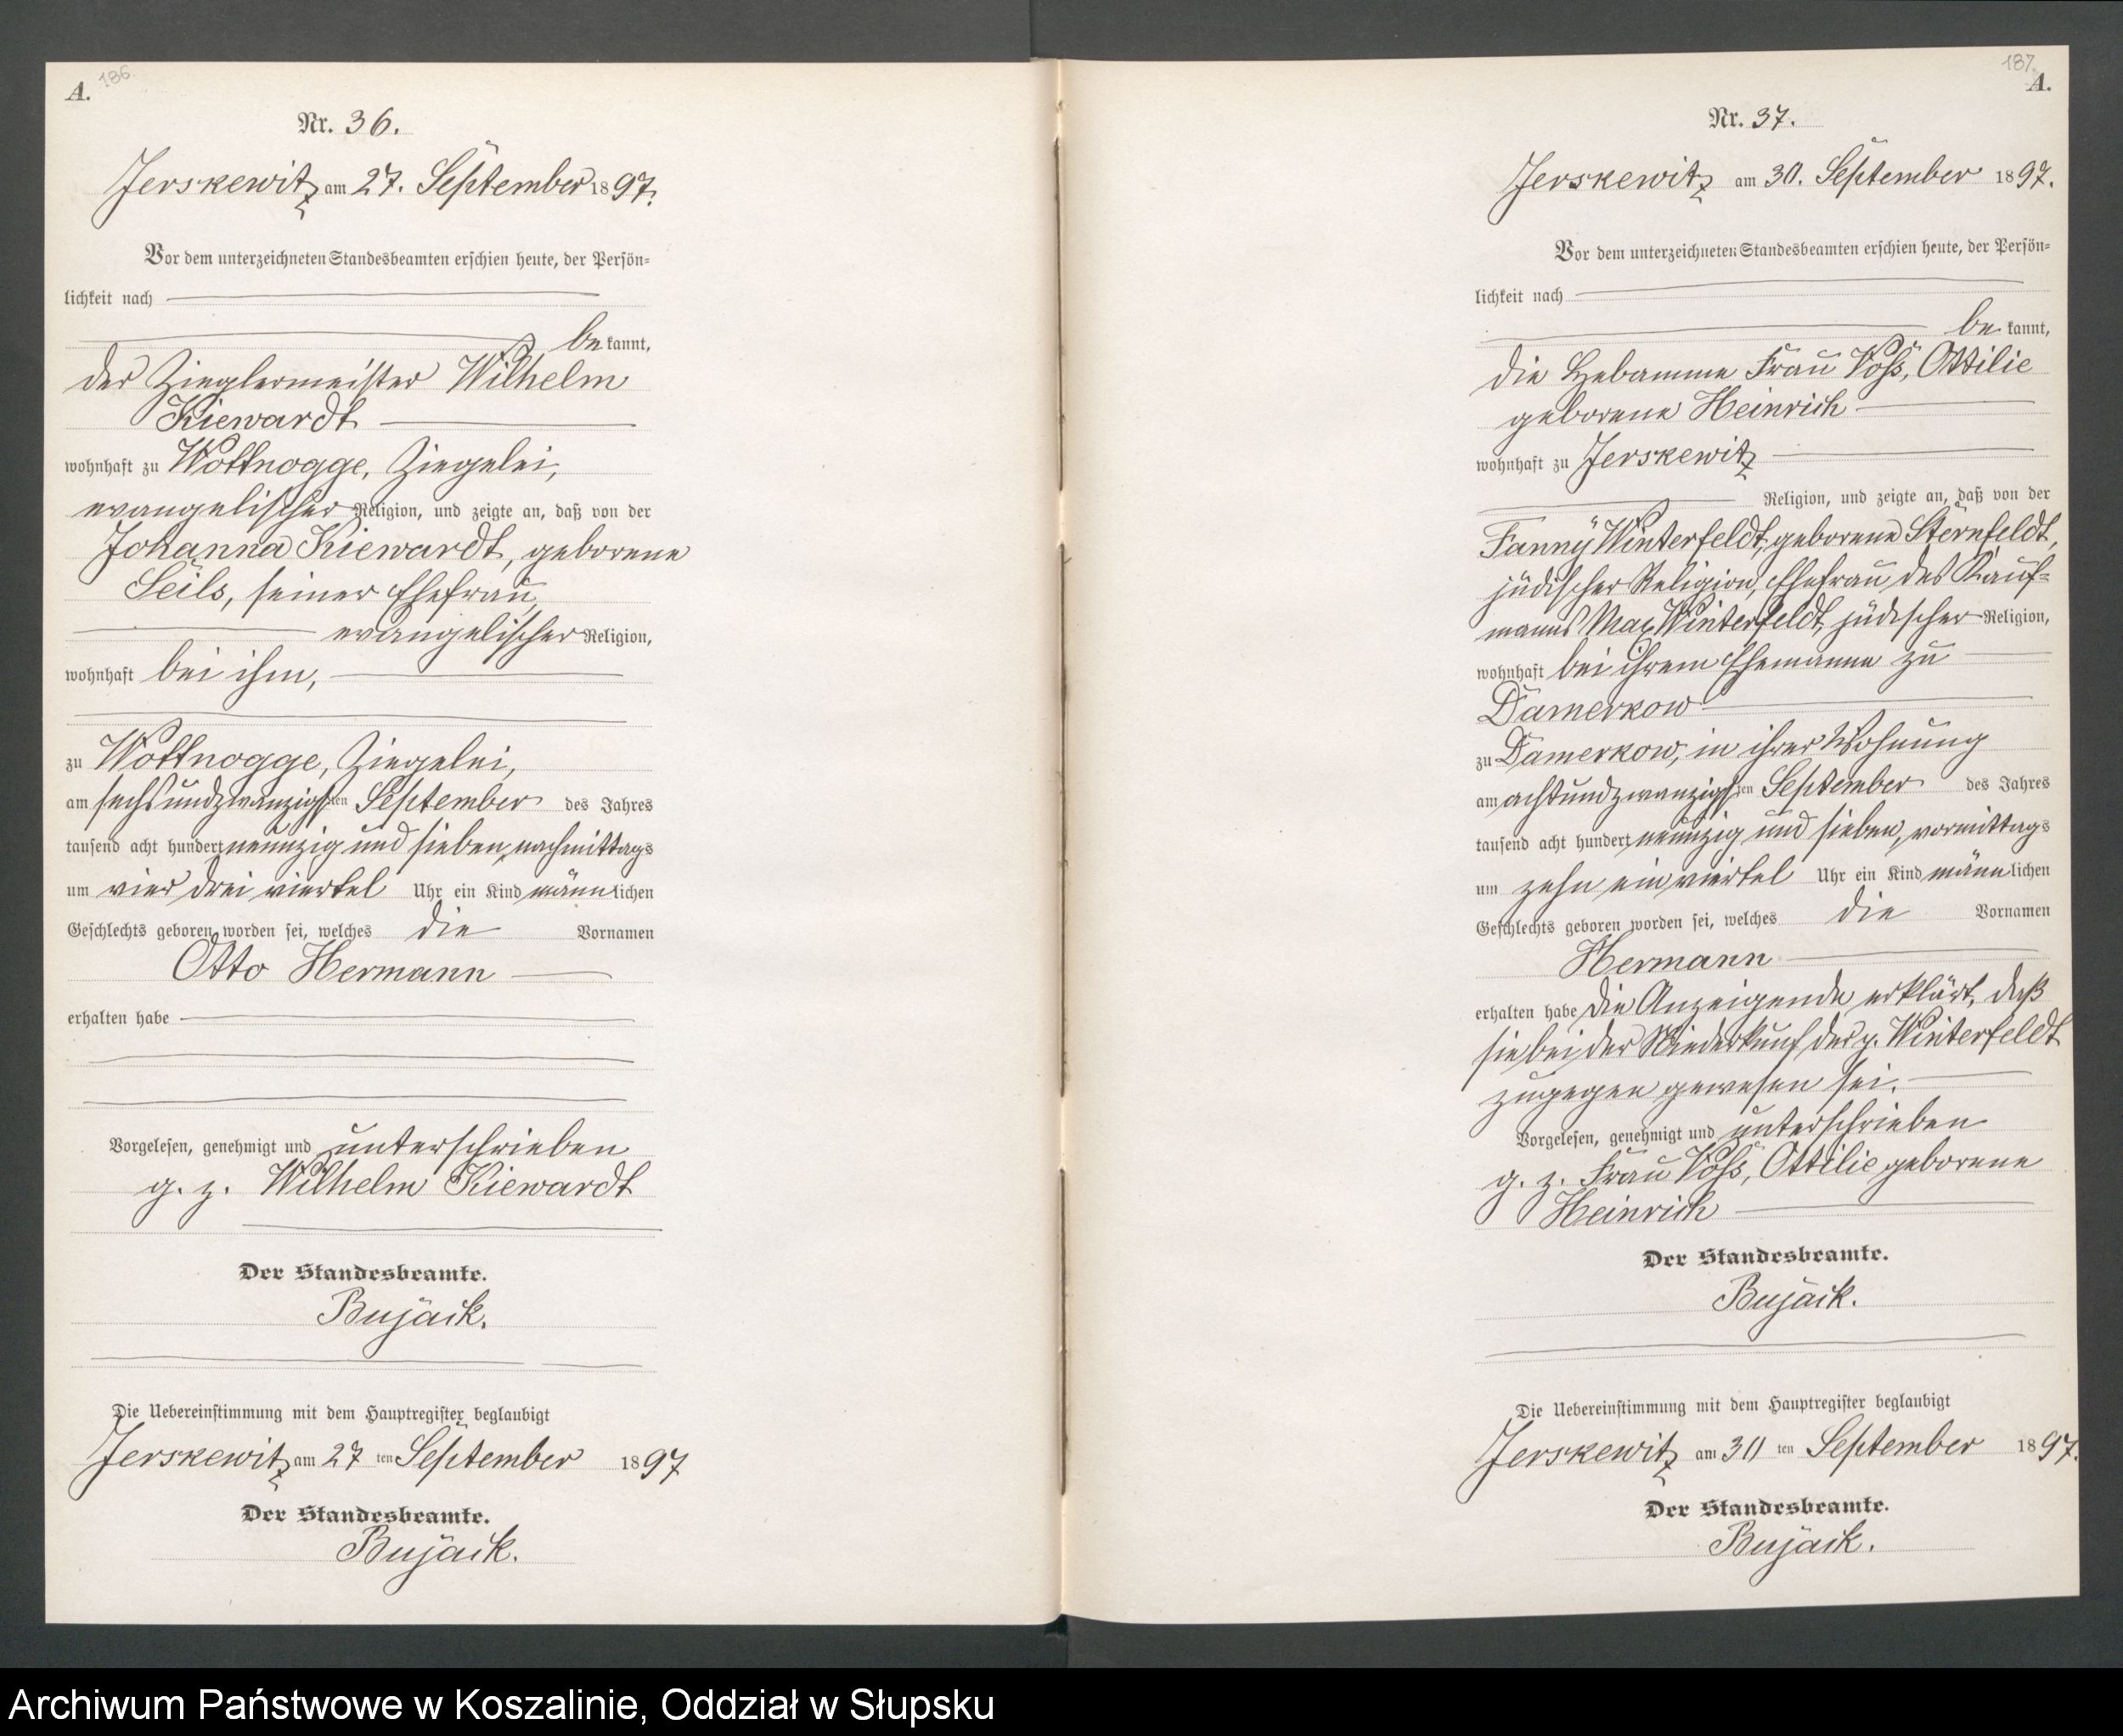 A.
186
Nr. 36.
Jerskewitz am 27. September 1897.
Vor dem unterzeichneten Standesbeamten erschien heute, der Persön-
lichkeit nach
be kannt,
der Zieglermeister Wilhelm
Kiewardt
wohnhaft zu Wottnogge, Ziegelei,
evangelischer Religion, und zeigte an, daß von der
Johanna Kiewardt, geborene
Seils, seiner Ehefrau,
evangelischer Religion,
wohnhaft bei ihm,
zu Wottnogge, Ziegelei,
am sechsundzwanzigsten September des Jahres
tausend acht hundert neunzig und sieben, nachmittags
um vier drei viertel Uhr ein Kind männlichen
Geschlechts geboren worden sei, welches die Vornamen
Otto Hermann
erhalten habe
Vorgelesen, genehmigt und unterschrieben
g. z. Wilhelm Kiewardt
Der Standesbeamte.
Bujack.
Die Uebereinstimmung mit dem Hauptregister beglaubigt
Jerskewitz am 27 ten September 1897
Der Standesbeamte.
Bujack.
187.
A.
Nr. 37.
Jerskewitz am 30. September 1897.
Vor dem unterzeichneten Standesbeamten erschien heute, der Persön-
lichkeit nach
be kannt,
die Hebamme Frau Voß, Ottilie
geborene Heinrich
wohnhaft zu Jerskewitz
Religion, und zeigte an, daß von der
Fanny Winterfeldt, geborene Sternfeldt,
jüdischer Religion, Ehefrau des Kauf-
manns Max Winterfeldt, jüdischer Religion,
wohnhaft bei ihrem Ehemanne zu
Damerkow
zu Damerkow, in ihrer Wohnung
am achtundzwanzigsten September des Jahres
tausend acht hundert neunzig und sieben, vormittags
um zehn ein viertel Uhr ein Kind männlichen
Geschlechts geboren worden sei, welches die Vornamen
Hermann
erhalten habe die Anzeigende erklärt, daß
sie bei der Niederkunf der p. Winterfeldt
zugegen gewesen sei.
Vorgelesen, genehmigt und unterschrieben
g. z. Frau Voß, Ottilie geborene
Heinrich
Der Standesbeamte.
Bujack.
Die Uebereinstimmung mit dem Hauptregister beglaubigt
Jerskewitz am 30 ten September 1897.
Der Standesbeamte.
Bujack.
Archiwum Państwowe w Koszalinie, Oddział w Słupsku